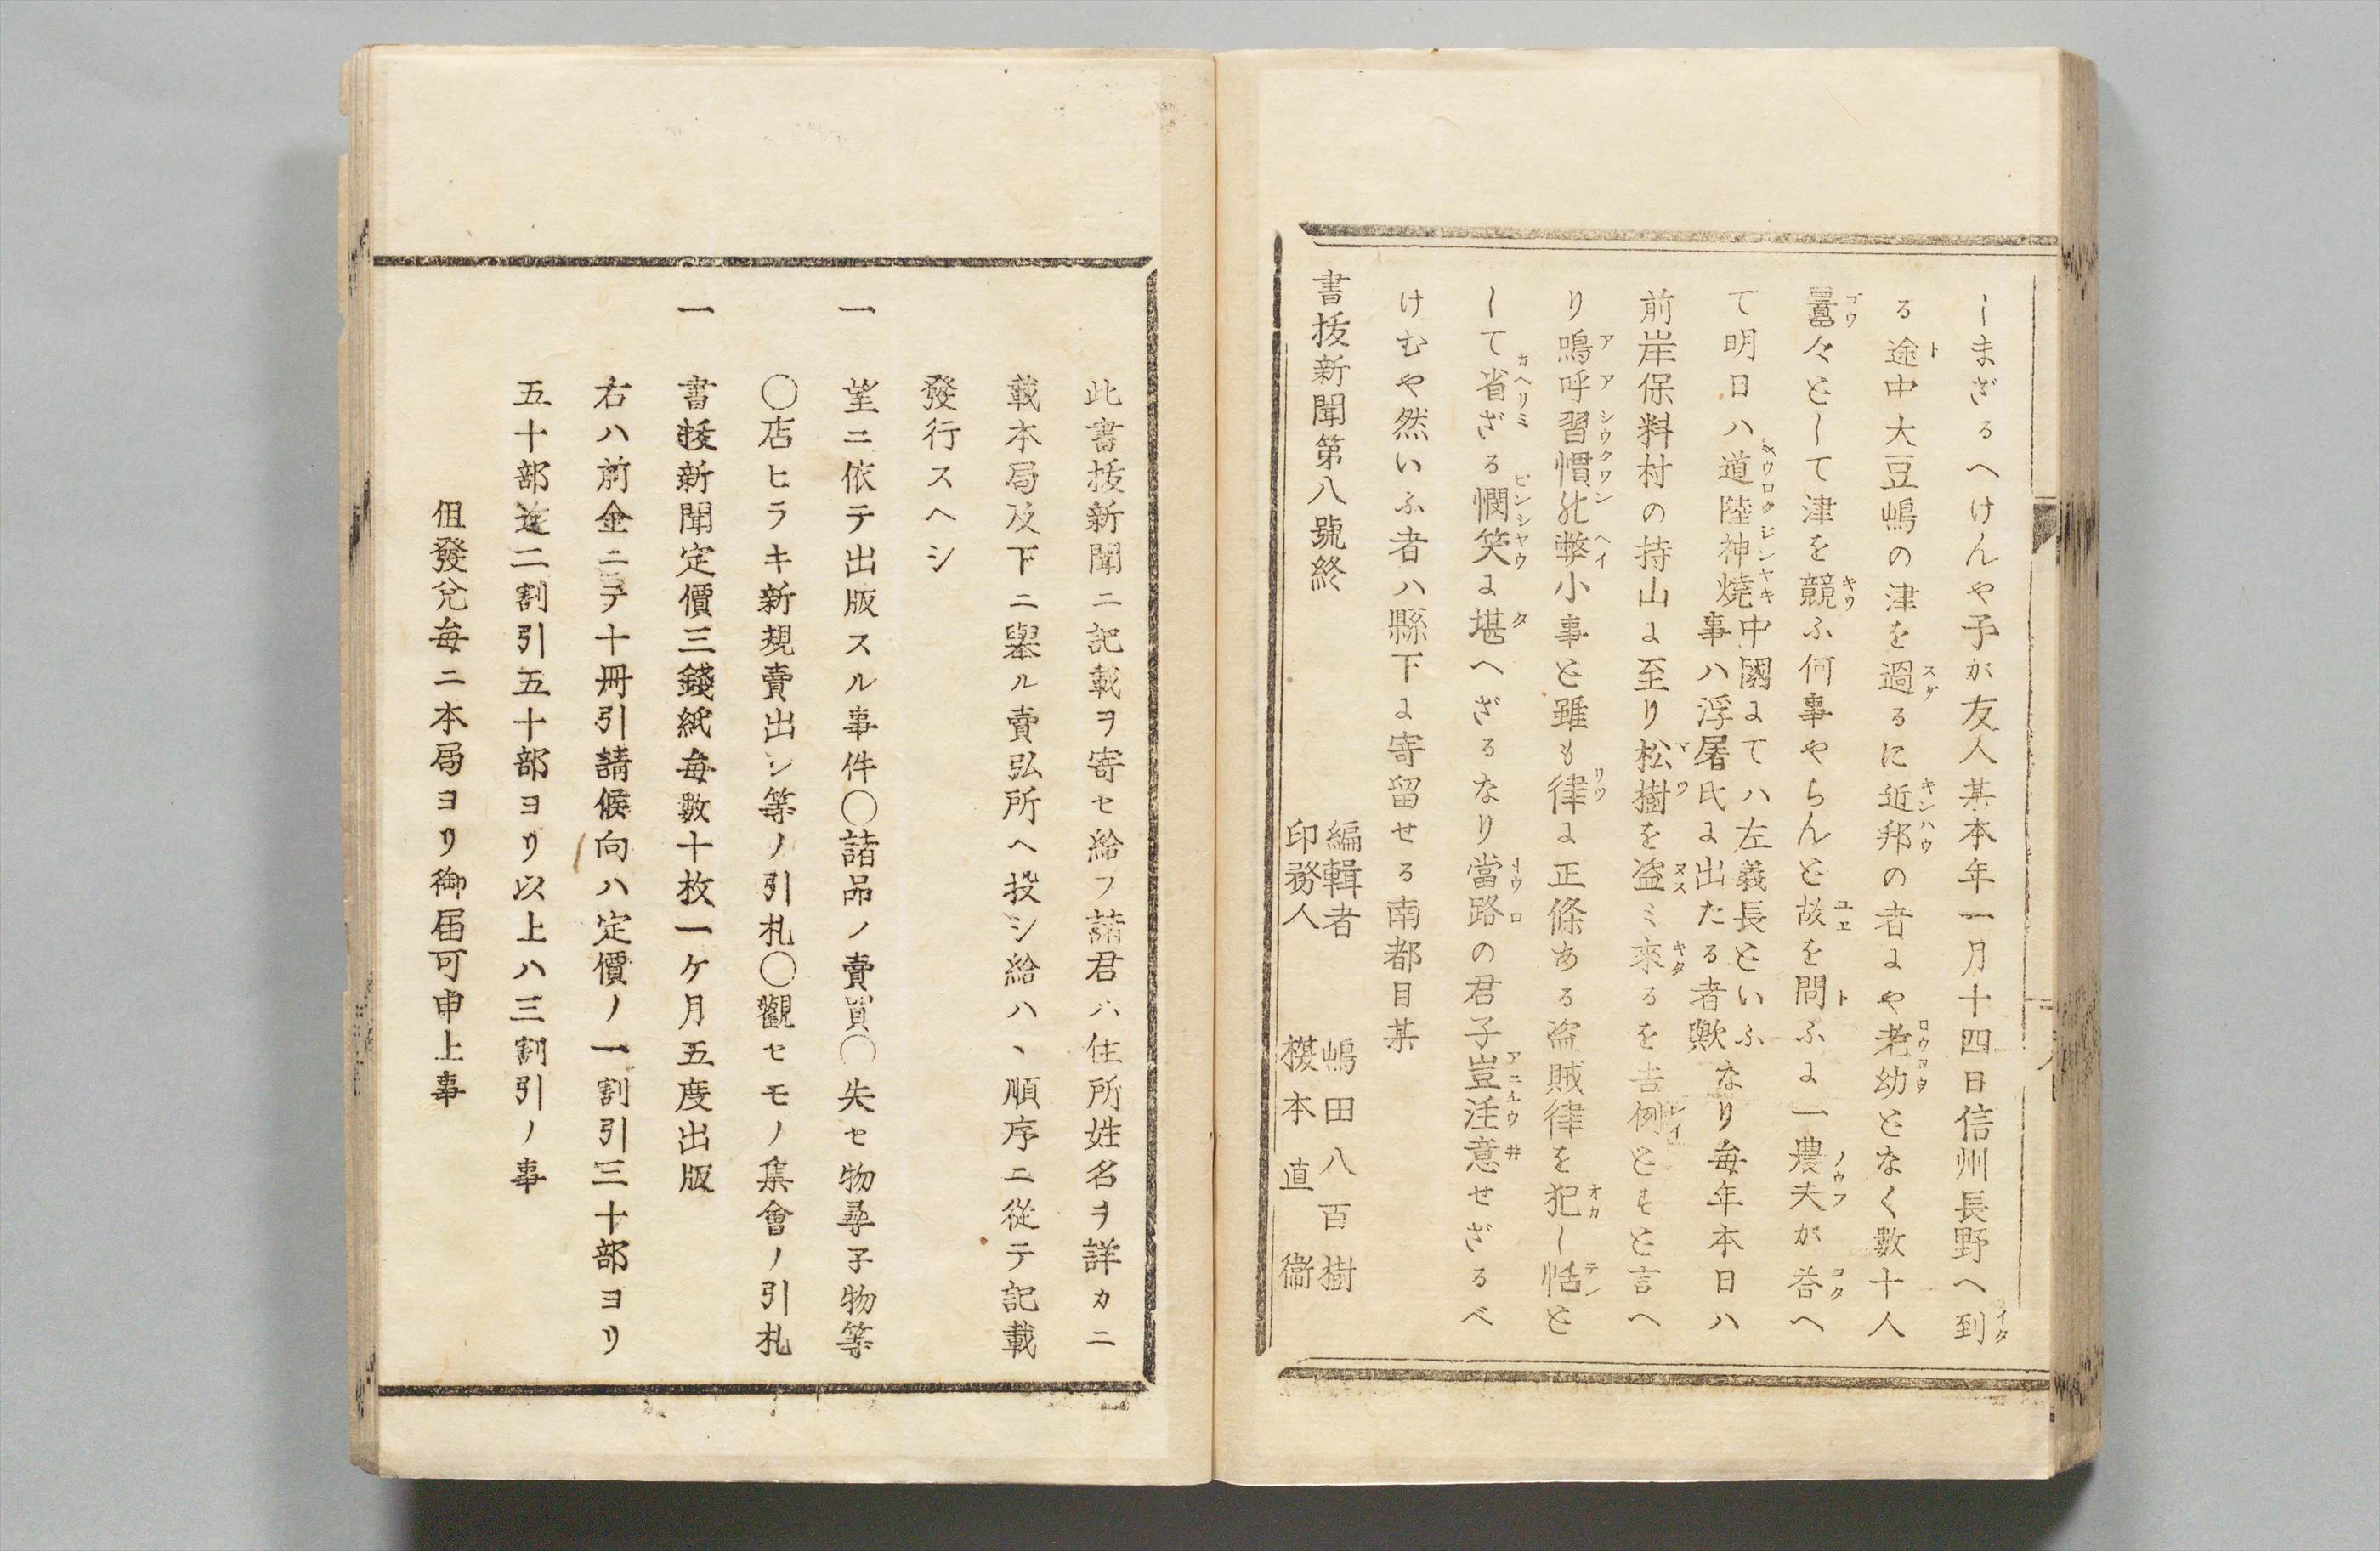 しまざるへけんや予が友人某本年一月十四日信州長野へ到
る途中大豆嶋の津を過るに近邦の者にや老幼となく數十人
囂々として津を競ふ何事やらんと故を問ふに一農夫が答へ
て明日ハ道陸神燒中國にてハ左義長といふ事ハ浮屠氏に出たる者歟なり毎年本日ハ
前岸保料村の持山に至り松樹を盗ミ來るを吉例とすと言へ
り嗚呼習慣の弊小事と雖も律に正條ある盗賊律を犯し恬と
して省ざる憫笑に堪へざるなり當路の君子豈注意せざるべ
けむや然いふ者ハ縣下に寄留せる南都目某
書抜新聞第八號終
編輯者 嶋田八百樹
印務人 榠本直衞
此書抜新聞ニ記載ヲ寄セ給フ諸君ハ住所姓名ヲ詳カニ
載本局及下ニ擧ル賣弘所ヘ投シ給ハヽ順序ニ從テ記載
發行スヘシ
一 望ニ依テ出版スル事件〇諸品ノ賣買〇失セ物尋子物等
〇店ヒラキ新規賣出シ等ノ引札〇觀セモノ集會ノ引札
一 書抜新聞定價三錢紙毎數十枚一ケ月五度出版
右ハ前金ニテ十冊引請候向ハ定價ノ一割引三十部ヨリ
五十部迄二割引五十部ヨリ以上ハ三割引ノ事
但發兌毎ニ本局ヨリ御届可申上事